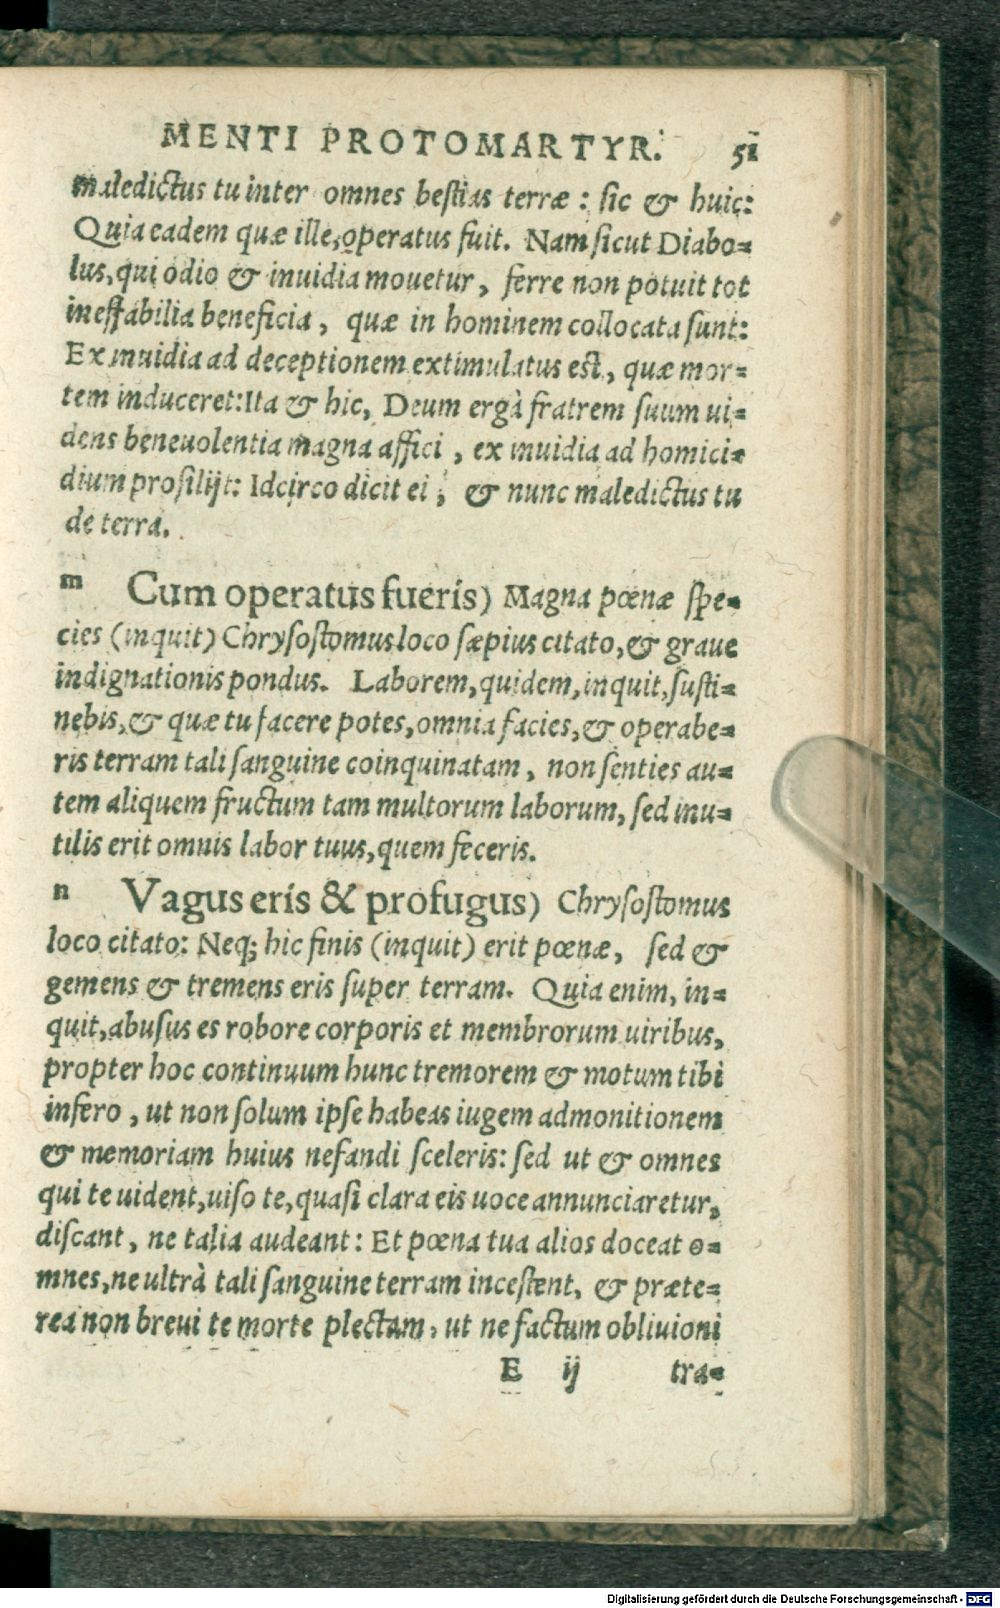 MENTI PROTOMARTYR. 51
maledictus tu inter omnes bestias terræ : sic & huic:
Quia eadem quæ ille, operatus fuit. Nam sicut Diabo-
lus, qui odio & inuidia mouetur, ferre non potuit tot
ineffabilia beneficia, quæ in hominem collocata sunt:
Ex inuidia ad deceptionem extimulatus est, quæ mor-
tem induceret: Ita & hic, Deum ergà fratrem suum ui-
dens beneuolentia magna affici, ex inuidia ad homici-
dium prosilijt: Idcirco dicit ei, & nunc maledictus tu
de terra.
m Cum operatus fueris) Magna pœnæ spe-
cies (inquit) Chrysostomus loco sæpius citato, & graue
indignationis pondus. Laborem, quidem, inquit, susti-
nebis, & quæ tu facere potes, omnia facies, & operabe-
ris terram tali sanguine coinquinatam, non senties au-
tem aliquem fructum tam multorum laborum, sed inu-
tilis erit omnis labor tuus, quem feceris.
n Vagus eris & profugus) Chrysostomus
loco citato: Neq; hic finis (inquit) erit pœnæ, sed &
gemens & tremens eris super terram. Quia enim, in-
quit, abusus es robore corporis et membrorum uiribus,
propter hoc continuum hunc tremorem & motum tibi
infero, ut non solum ipse habeas iugem admonitionem
& memoriam huius nefandi sceleris: sed ut & omnes
qui te uident, uiso te, quasi clara eis uoce annunciaretur,
discant, ne talia audeant: Et pœna tua alios doceat o-
mnes, ne ultrà tali sanguine terram incestent, & præte-
rea non breui te morte plectam, ut ne factum obliuioni
E ij tra-
Digitalisierung gefördert durch die Deutsche Forschungsgemeinschaft - DFG